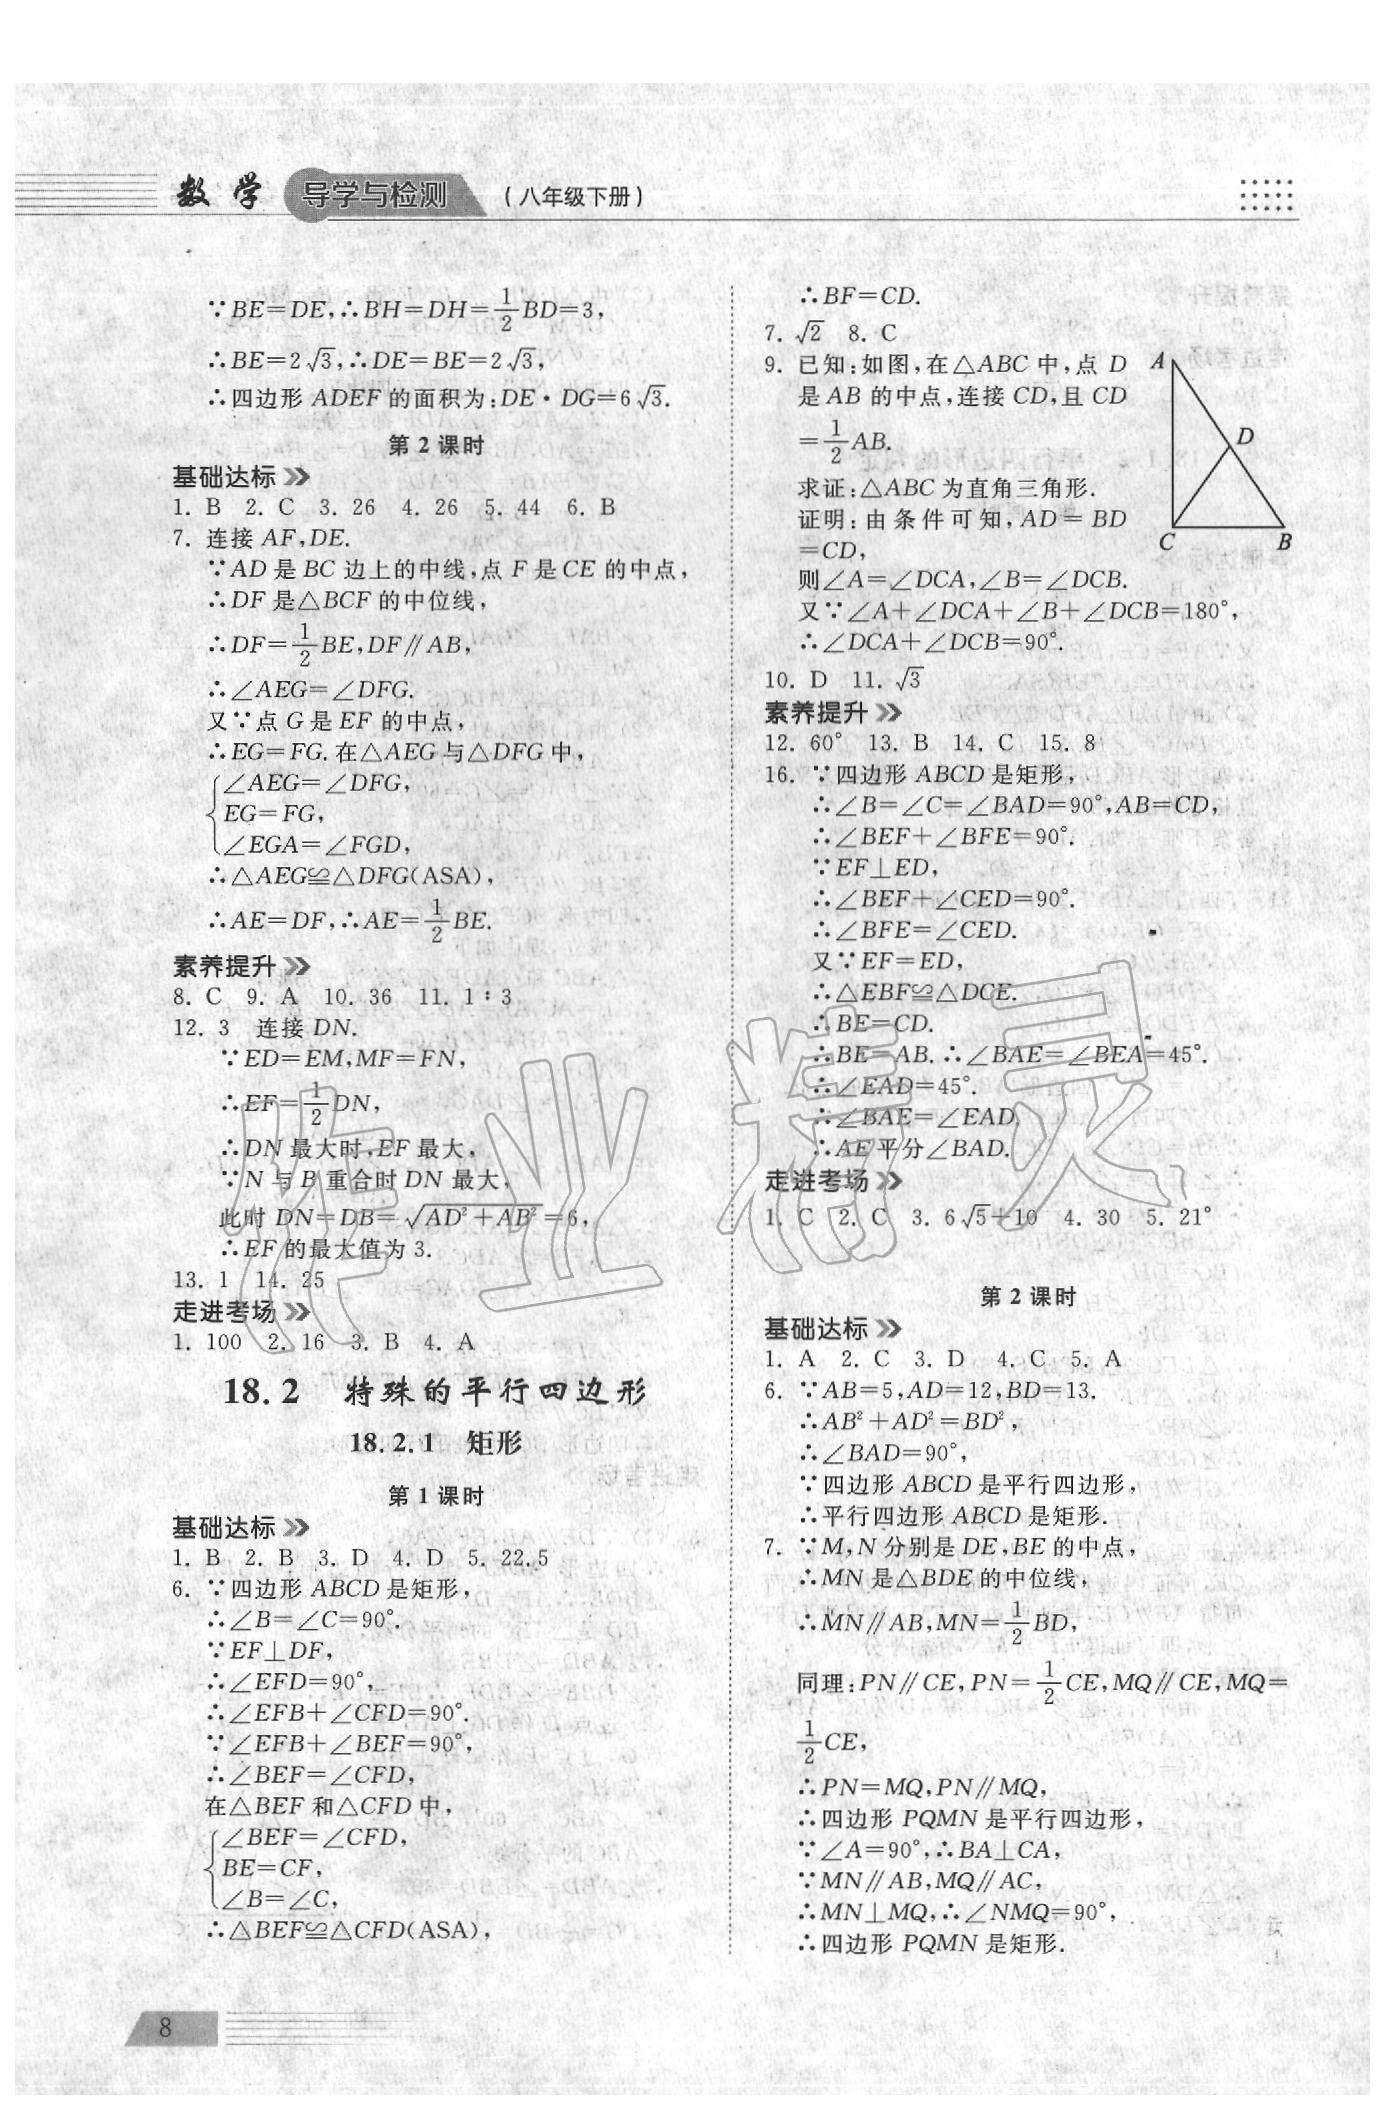 数学 导学与检测 (八年级下册)
∵BE=DE,∴BH=DH=1/2BD=3,
∴BE=2√3,∴DE=BE=2√3,
∴四边形 ADEF 的面积为:DE·DG=6√3.
第 2 课时
基础达标
1. B 2. C 3. 26 4. 26 5. 44 6. B
7. 连接 AF,DE.
∵AD 是 BC 边上的中线,点 F 是 CE 的中点,
∴DF 是△BCF 的中位线,
∴DF=1/2BE,DF∥AB,
∴∠AEG=∠DFG.
又∵点 G 是 EF 的中点,
∴EG=FG. 在△AEG 与△DFG 中,
∠AEG=∠DFG,
EG=FG,
∠EGA=∠FGD,
∴△AEG≌△DFG(ASA),
∴AE=DF,∴AE=1/2BE.
素养提升
8. C 9. A 10. 36 11. 1∶3
12. 3 连接 DN.
∵ED=EM,MF=FN,
∴EF=1/2DN,
∴DN 最大时,EF 最大,
∵N 与 B 重合时 DN 最大,
此时 DN=DB=√(AD²+AB²)=6,
∴EF 的最大值为 3.
13. 1 14. 25
走进考场
1. 100 2. 16 3. B 4. A
18.2 特殊的平行四边形
18.2.1 矩形
第 1 课时
基础达标
1. B 2. B 3. D 4. D 5. 22.5
6. ∵四边形 ABCD 是矩形,
∴∠B=∠C=90°.
∵EF⊥DF,
∴∠EFD=90°,
∴∠EFB+∠CFD=90°.
∵∠EFB+∠BEF=90°,
∴∠BEF=∠CFD,
在△BEF 和△CFD 中,
∠BEF=∠CFD,
BE=CF,
∠B=∠C,
∴△BEF≌△CFD(ASA),
∴BF=CD.
7. √2 8. C
9. 已知:如图,在△ABC 中,点 D
是 AB 的中点,连接 CD,且 CD
=1/2AB.
求证:△ABC 为直角三角形.
证明:由条件可知,AD=BD
=CD,
则∠A=∠DCA,∠B=∠DCB.
又∵∠A+∠DCA+∠B+∠DCB=180°,
∴∠DCA+∠DCB=90°.
A
D
C
B
10. D 11. √3
素养提升
12. 60° 13. B 14. C 15. 8
16. ∵四边形 ABCD 是矩形,
∴∠B=∠C=∠BAD=90°,AB=CD,
∴∠BEF+∠BFE=90°.
∵EF⊥ED,
∴∠BEF+∠CED=90°.
∴∠BFE=∠CED.
又∵EF=ED,
∴△EBF≌△DCE.
∴BE=CD.
∴BE=AB. ∴∠BAE=∠BEA=45°.
∴∠EAD=45°.
∴∠BAE=∠EAD.
∴AE 平分∠BAD.
走进考场
1. C 2. C 3. 6√5+10 4. 30 5. 21°
第 2 课时
基础达标
1. A 2. C 3. D 4. C 5. A
6. ∵AB=5,AD=12,BD=13.
∴AB²+AD²=BD²,
∴∠BAD=90°,
∵四边形 ABCD 是平行四边形,
∴平行四边形 ABCD 是矩形.
7. ∵M,N 分别是 DE,BE 的中点,
∴MN 是△BDE 的中位线,
∴MN∥AB,MN=1/2BD,
同理:PN∥CE,PN=1/2CE,MQ∥CE,MQ=
1/2CE,
∴PN=MQ,PN∥MQ,
∴四边形 PQMN 是平行四边形,
∵∠A=90°,∴BA⊥CA,
∵MN∥AB,MQ∥AC,
∴MN⊥MQ,∴∠NMQ=90°,
∴四边形 PQMN 是矩形.
作业精灵
8